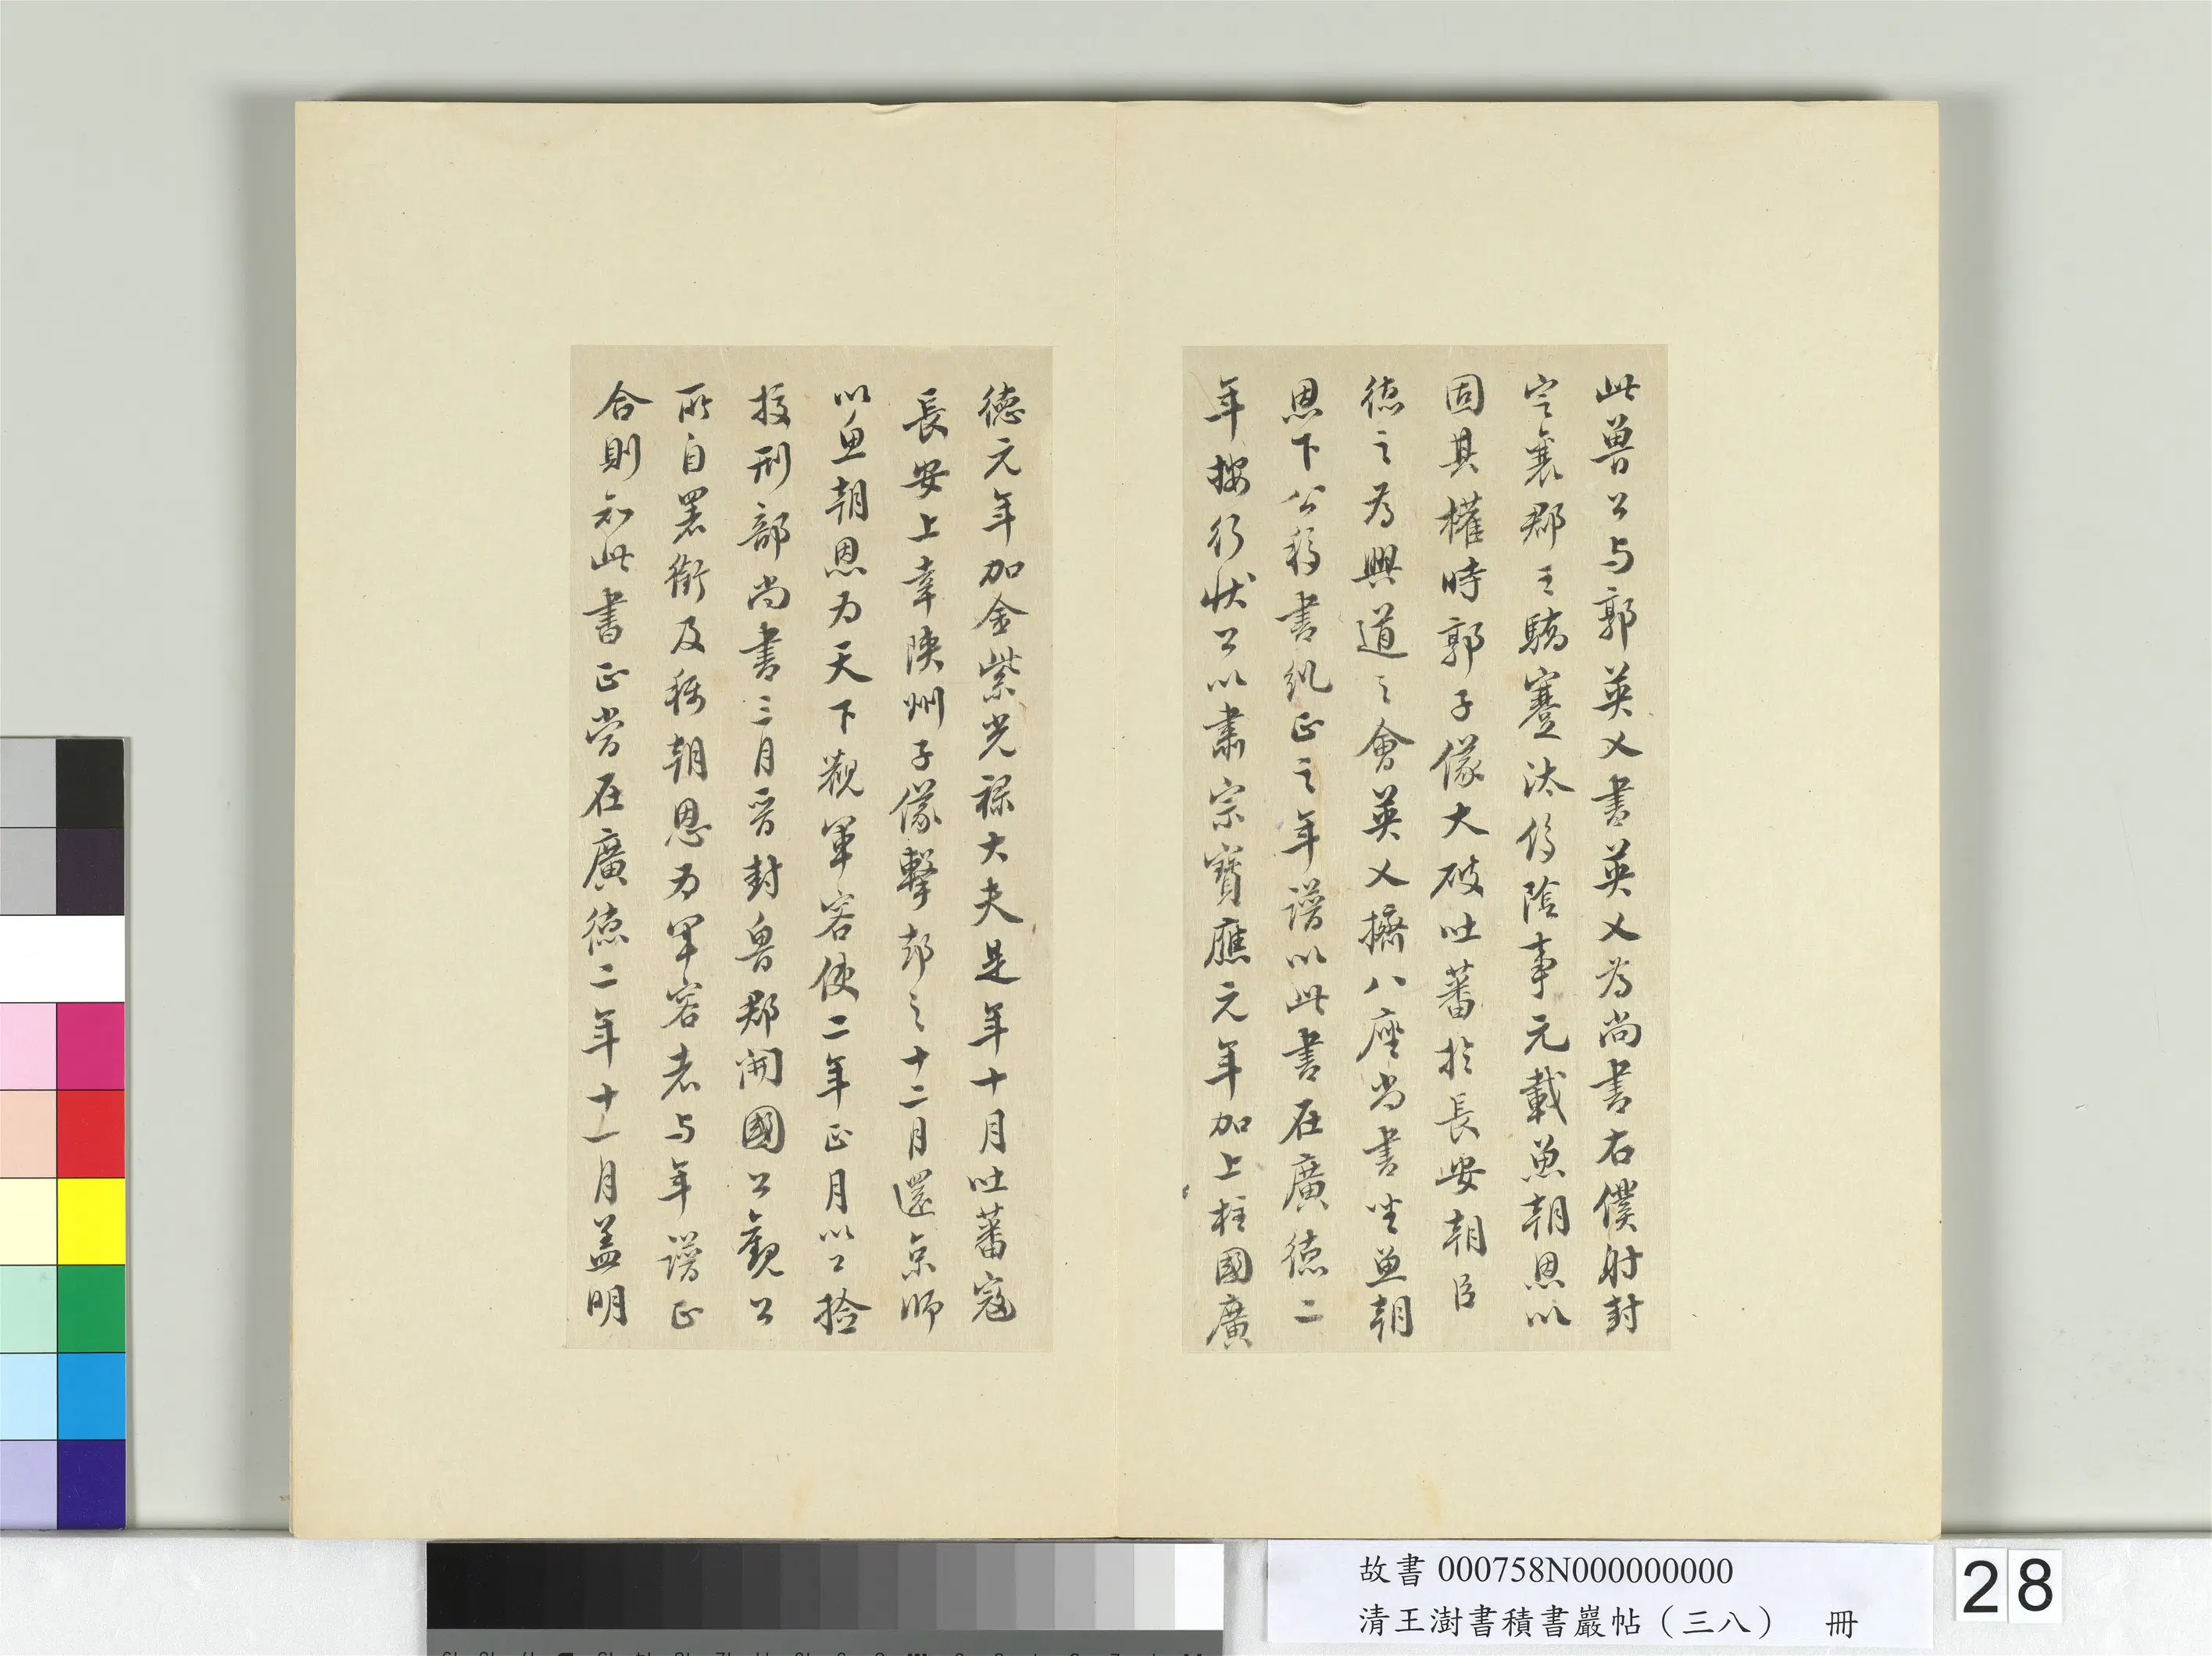 此魯公与郭英乂書英乂為尚書右僕射封
定襄郡王驕蹇汰侈陰事元載魚朝恩以
固其權時郭子儀大破吐蕃於長安朝臣
德之為興道之會英乂擠八座尚書坐魚朝
恩下公移書糾正之年譜以此書在廣德二
年按行狀公以肅宗寶應元年加上柱國廣
德元年加金紫光祿大夫是年十月吐蕃寇
長安上幸陝州子儀擊却之十二月還京師
以魚朝恩為天下觀軍容使二年正月以公撿
挍刑部尚書三月晉封魯郡開國公觀公
所自署銜及稱朝恩為軍容者与年譜正
合則知此書正當在廣德二年十一月蓋明
故書 000758N000000000
清王澍書積書巖帖（三八） 冊
28